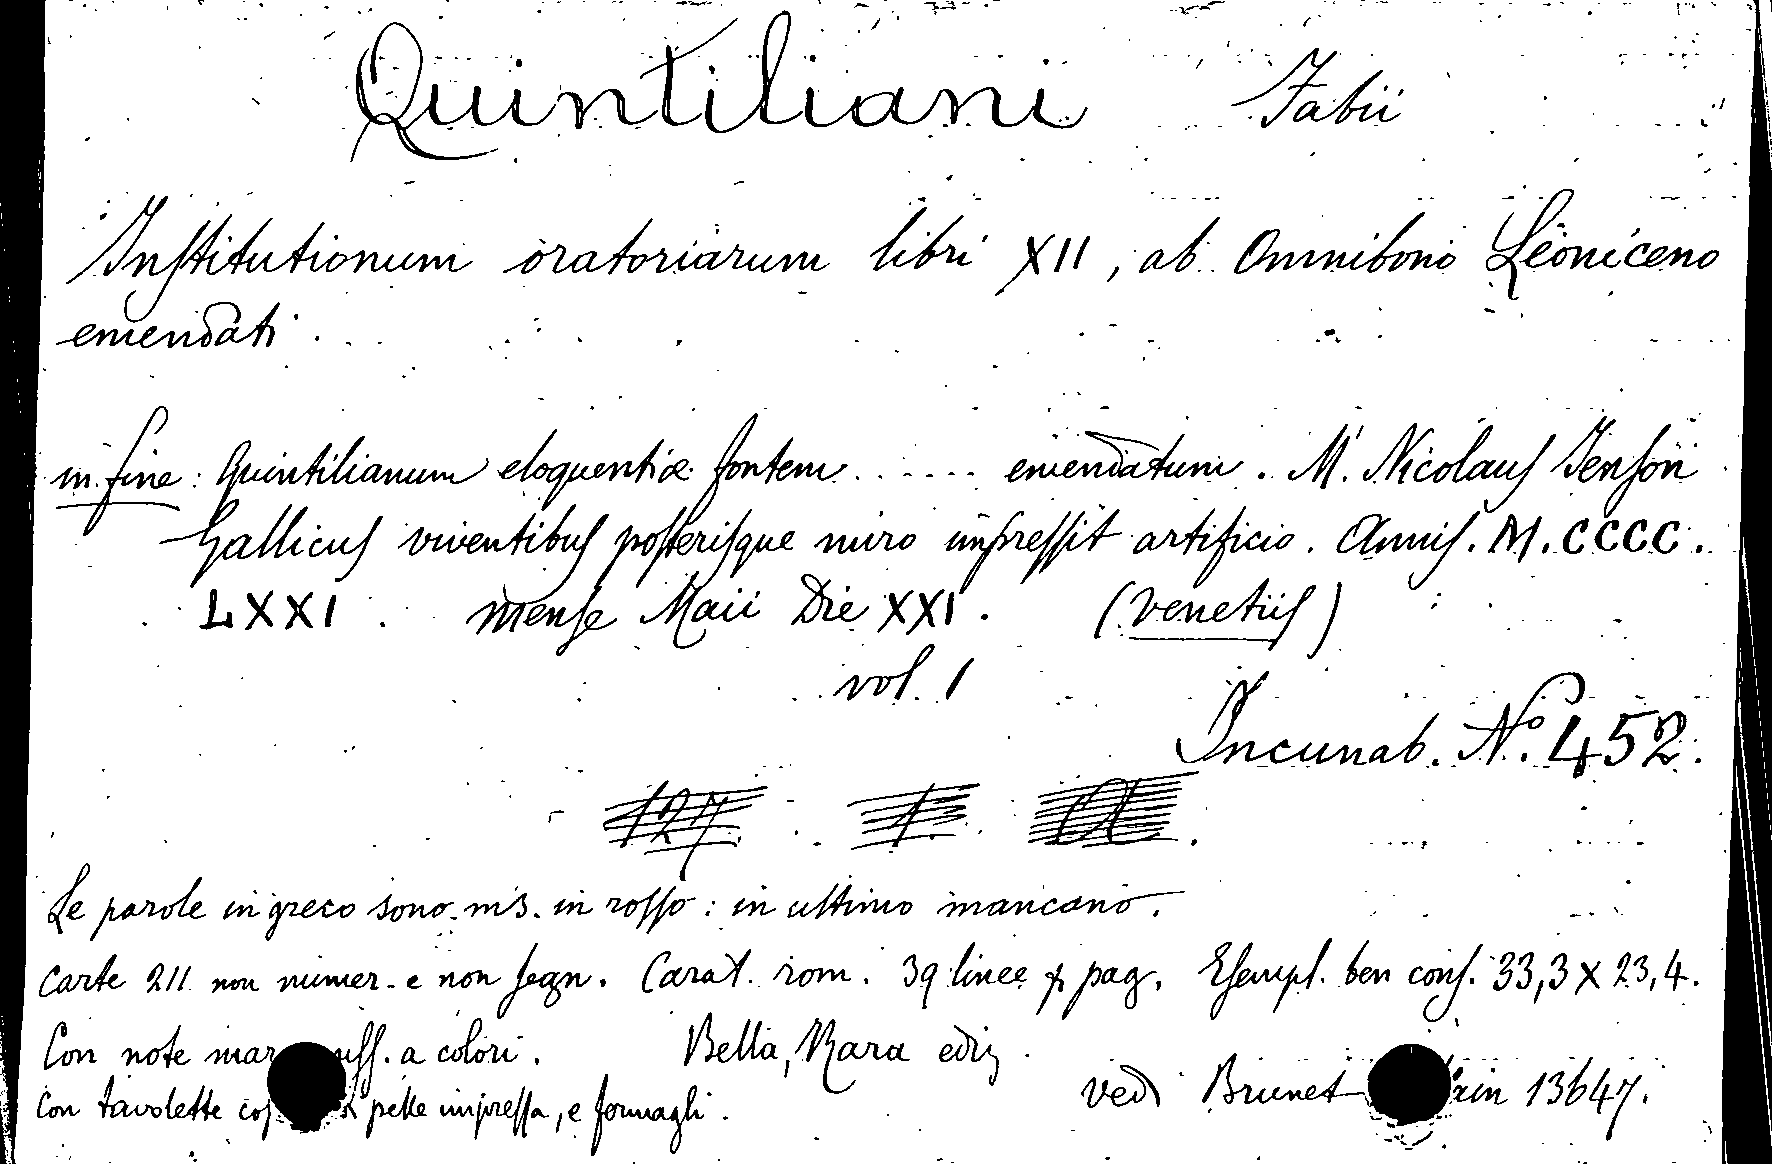 Quintiliani Fabii
Institutionum oratoriarum libri XII, ab Omnibono Leoniceno
emendati.
in fine: Quintilianum eloquentiæ fontem ..... emendatum. M. Nicolaus Jenson
Gallicus viventibus posterisque miro impressit artificio. Annis. M.CCCC.
LXXI. mense Maii Die XXI. (Venetiis)
vol. 1
Incunab. Nº 452.
127 1 A
Le parole in greco sono ms. in rosso: in ultimo mancano.
Carte 211 non numer. e non segn. Carat. rom. 39 linee p pag. Esempl. ben cons. 33,3 x 23,4.
Con note mar mss. a colori. Bella, Rara ediz.
vedi Brunet ain 13647.
Con tavolette cop pelle impressa, e fermagli.